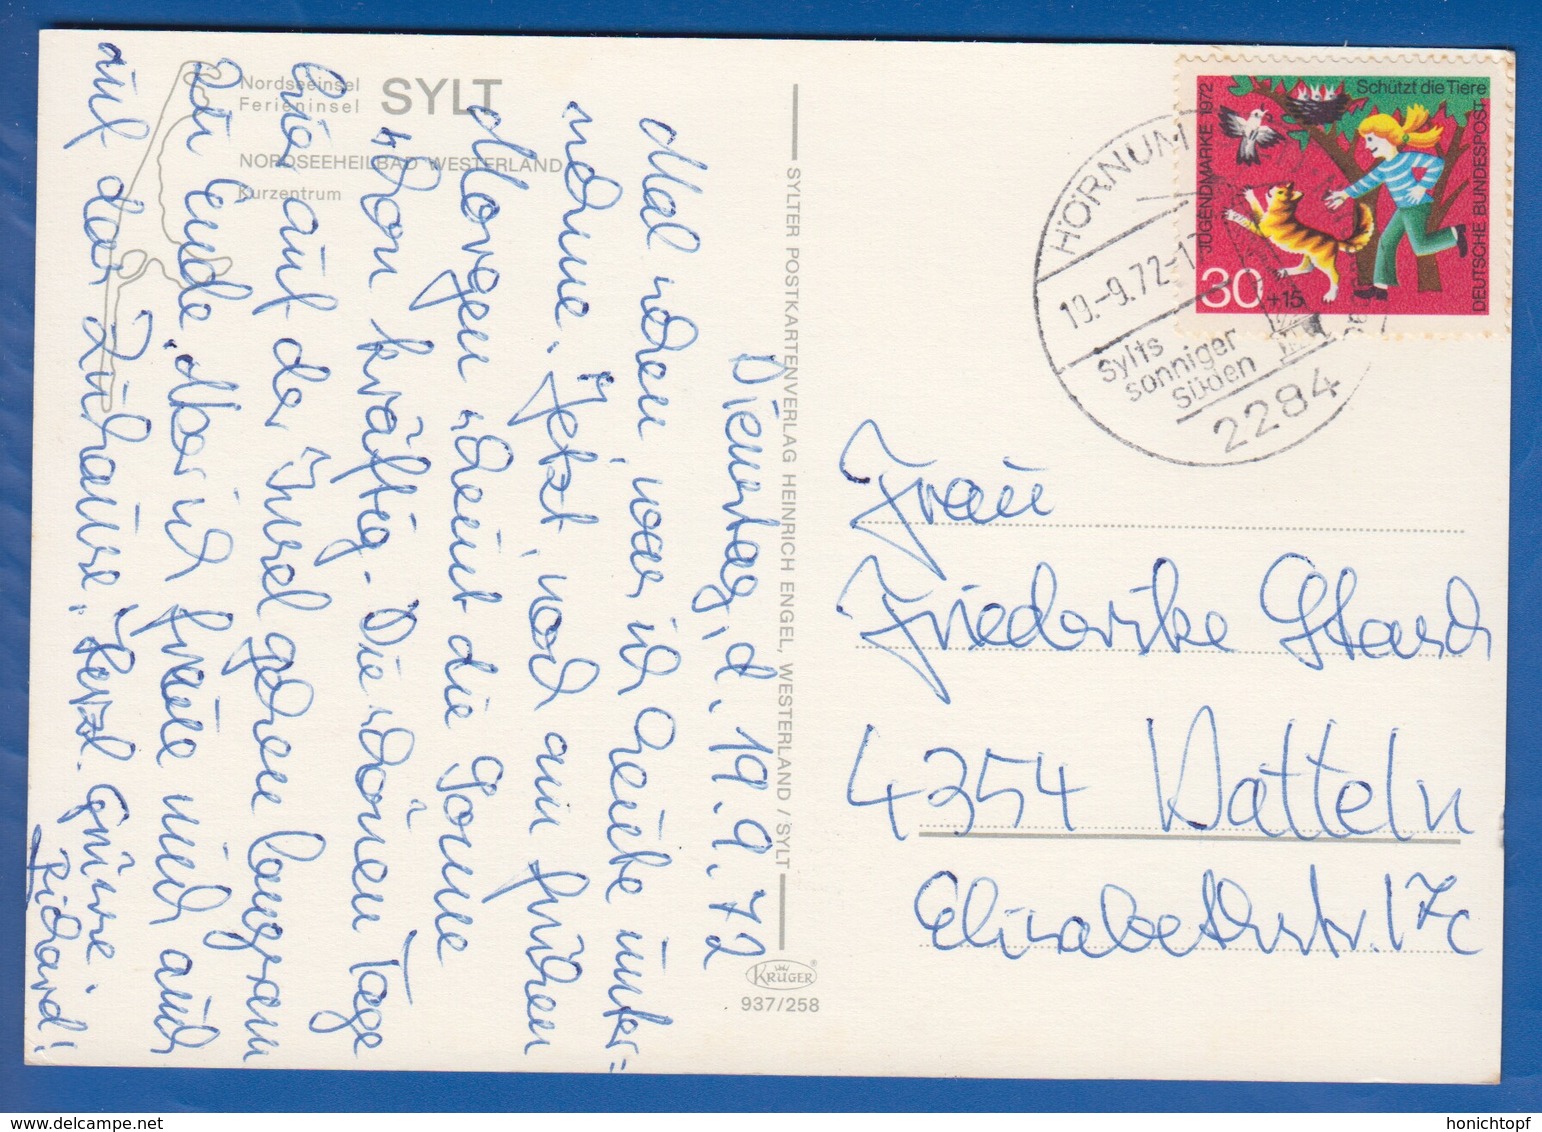 Nordseeinsel
Ferieninsel SYLT
NORDSEEHEILBAD WESTERLAND
Kurzentrum
Dienstag, d. 19.9.72
Mal sehen, was ich heute unter=
nehme. Jetzt, noch am frühen
Morgen scheint die Sonne
schon kräftig. Die schönen Tage
hier auf der Insel gehen langsam
zu Ende. Aber ich freue mich auch
auf das Zuhause. Herzl. Grüsse
Richard!
SYLTER POSTKARTENVERLAG HEINRICH ENGEL, WESTERLAND / SYLT
KRÜGER®
937/258
HÖRNUM
19.-9.72-1
Sylts
sonniger
Süden
2284
Schützt die Tiere
JUGENDMARKE 1972
DEUTSCHE BUNDESPOST
30 +15
Frau
Friederike
4354 Datteln
Elisabethstr. 17c
honichtopf